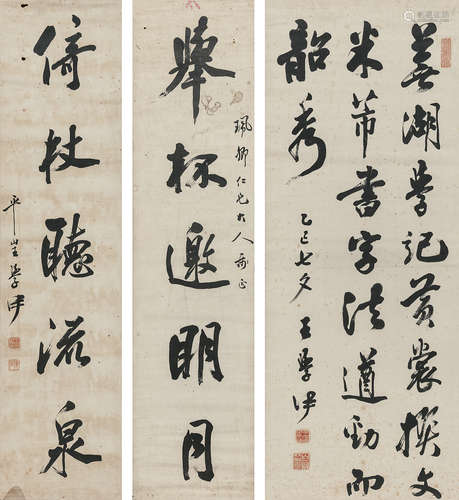 蕪湖學記黃裳撰文
米芾書字法遒勁而
韶秀
乙巳七夕 王學伊
舉杯邀明月
珮卿仁兄大人 正
倚杖聽流泉
平 學伊